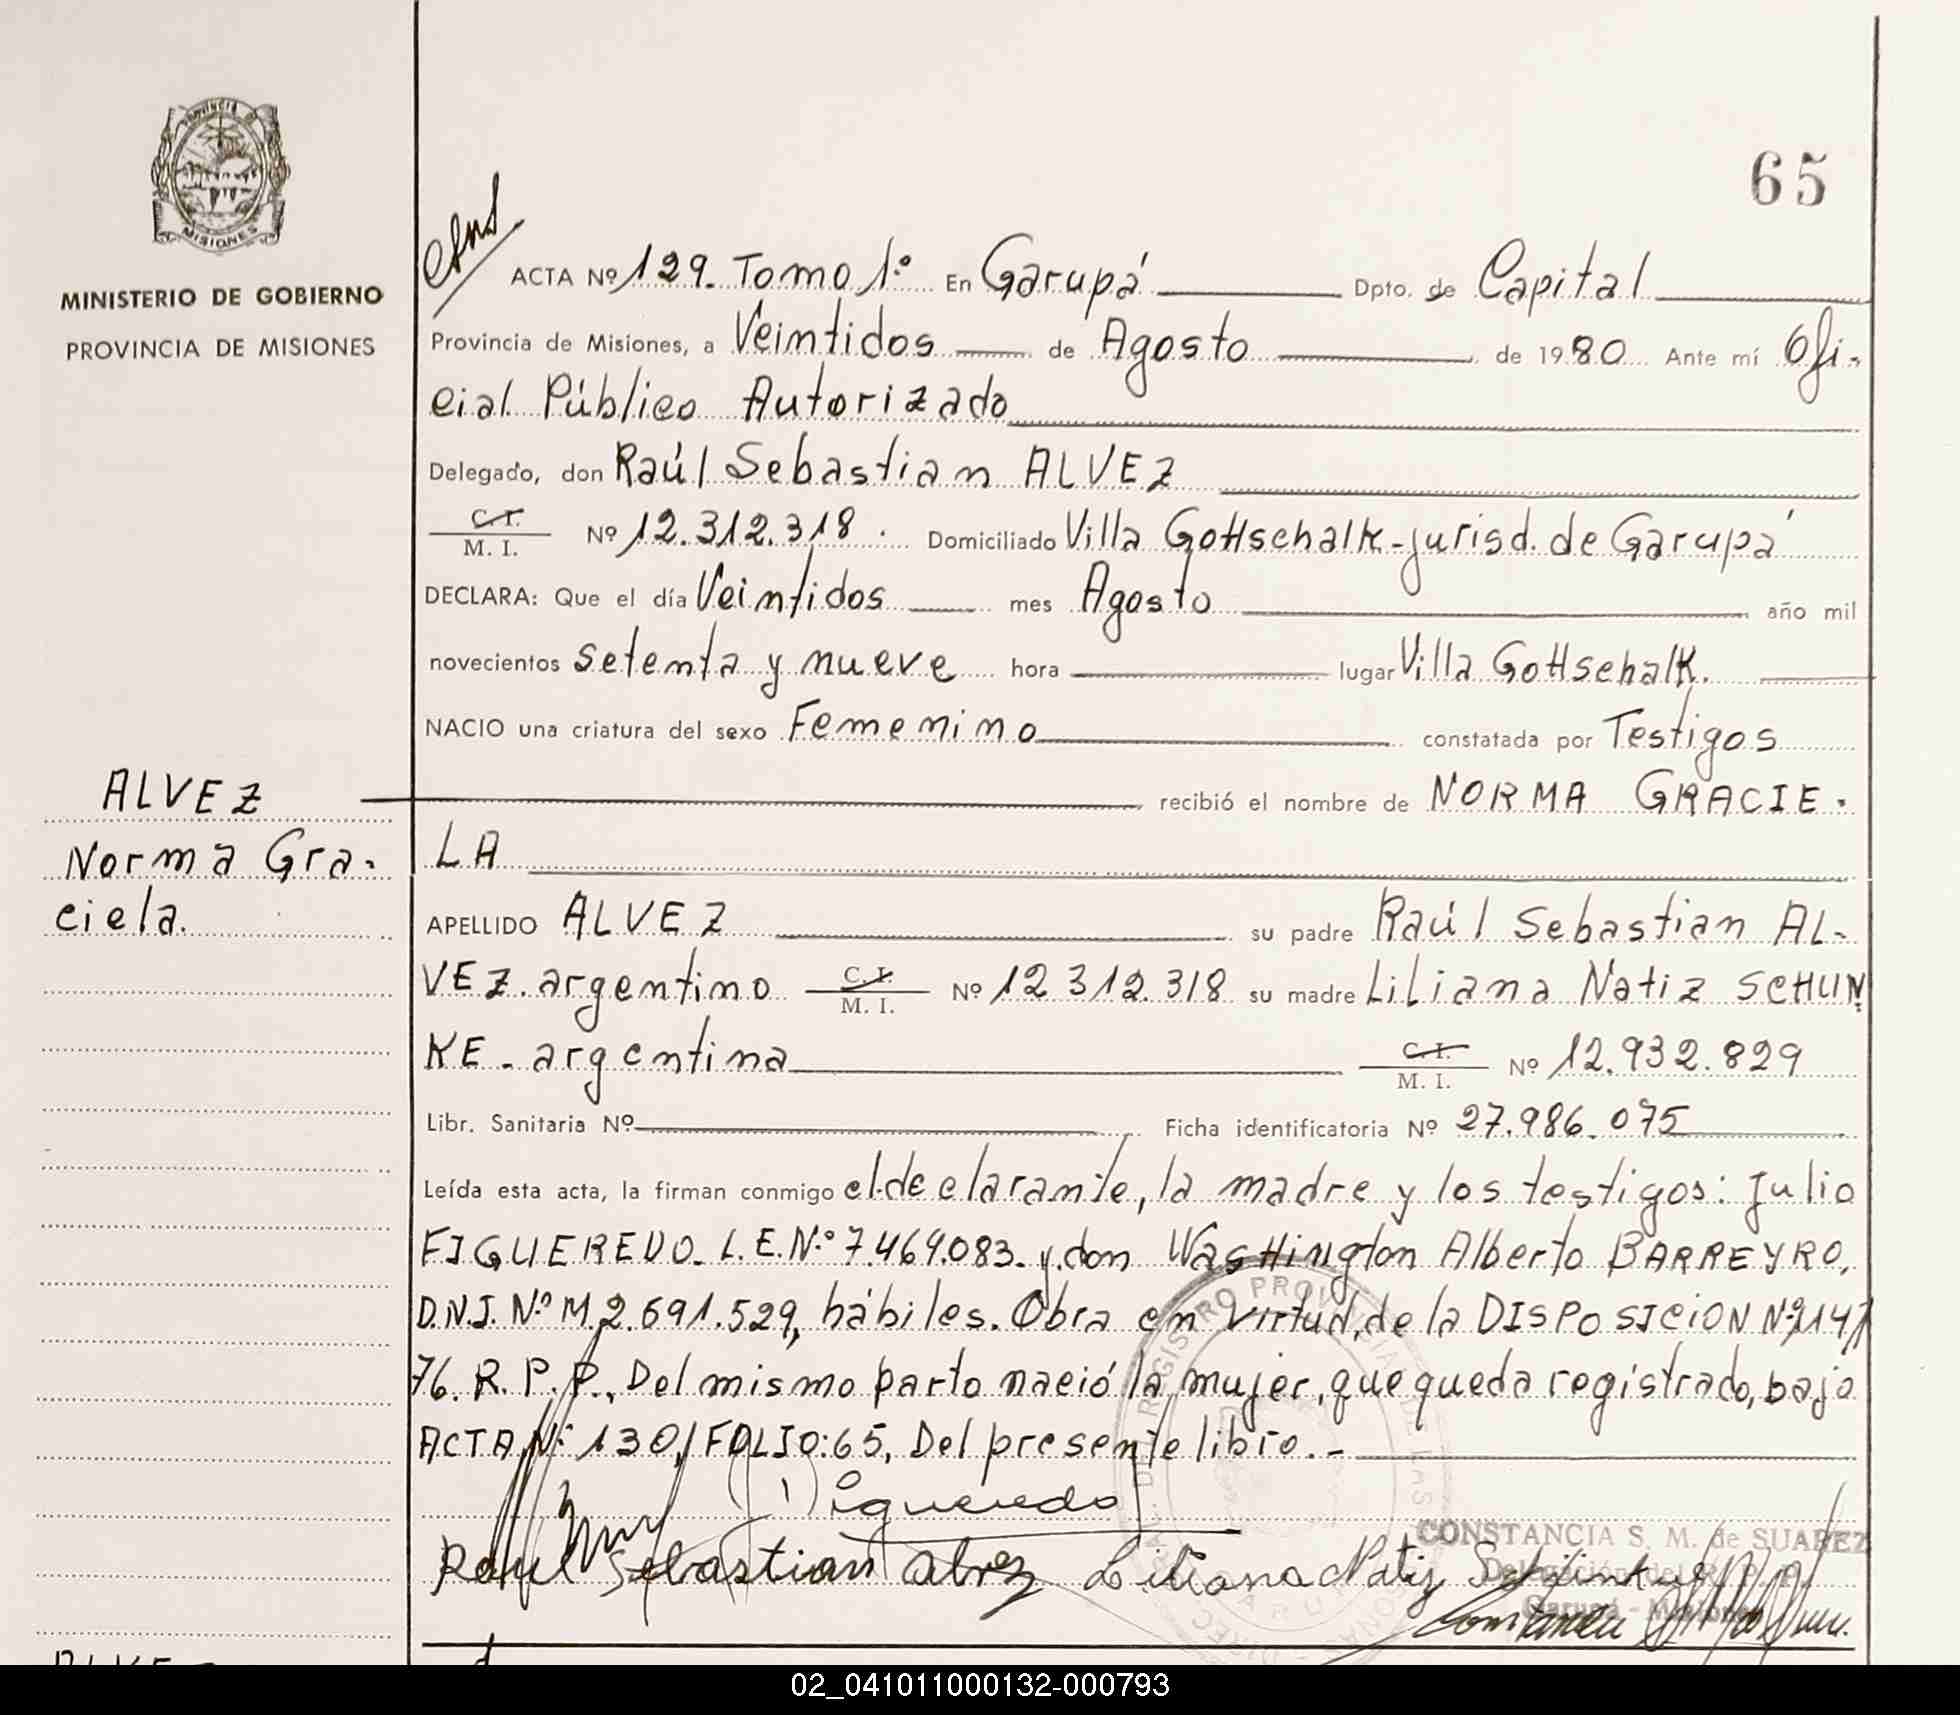 PROVINCIA DE
MISIONES
MINISTERIO DE GOBIERNO
PROVINCIA DE MISIONES
65
ACTA Nº 129. Tomo 1.º En Garupá Dpto. de Capital
Provincia de Misiones, a Veintidos de Agosto de 1980 Ante mí Ofi-
cial Público Autorizado
Delegado, don Raúl Sebastian ALVEZ
C. I.
M. I. Nº 12.312.318. Domiciliado Villa Gottschalk-jurisd. de Garupá
DECLARA: Que el día Veintidos mes Agosto año mil
novecientos setenta y nueve hora lugar Villa Gottschalk.
NACIO una criatura del sexo Femenino constatada por Testigos
recibió el nombre de NORMA GRACIE-
LA
ALVEZ
Norma Gra-
ciela.
APELLIDO ALVEZ su padre Raúl Sebastian AL-
VEZ. argentino C. I. M. I. Nº 12.312.318 su madre Liliana Natiz SCHUN
KE - argentina C. I. M. I. Nº 12.932.829
Libr. Sanitaria Nº Ficha identificatoria Nº 27.986.075
Leída esta acta, la firman conmigo el declarante, la madre y los testigos: Julio
FIGUEREDO. L.E.N.º 7.469.083. y don Washington Alberto BARREYRO,
D.N.I. Nº M. 2.691.529, hábiles. Obra en virtud, de la DISPOSICION Nº 147/
76. R.P.P., Del mismo parto nació la mujer, que queda registrado, bajo
ACTA Nº 130, FOLIO: 65, Del presente libro. -
Figueredo
Raul Sebastian Alvez Liliana Natiz Schunke
CONSTANCIA S. M. de SUAREZ
Delegación del R. P. P.
Garupá - Misiones
02_041011000132-000793